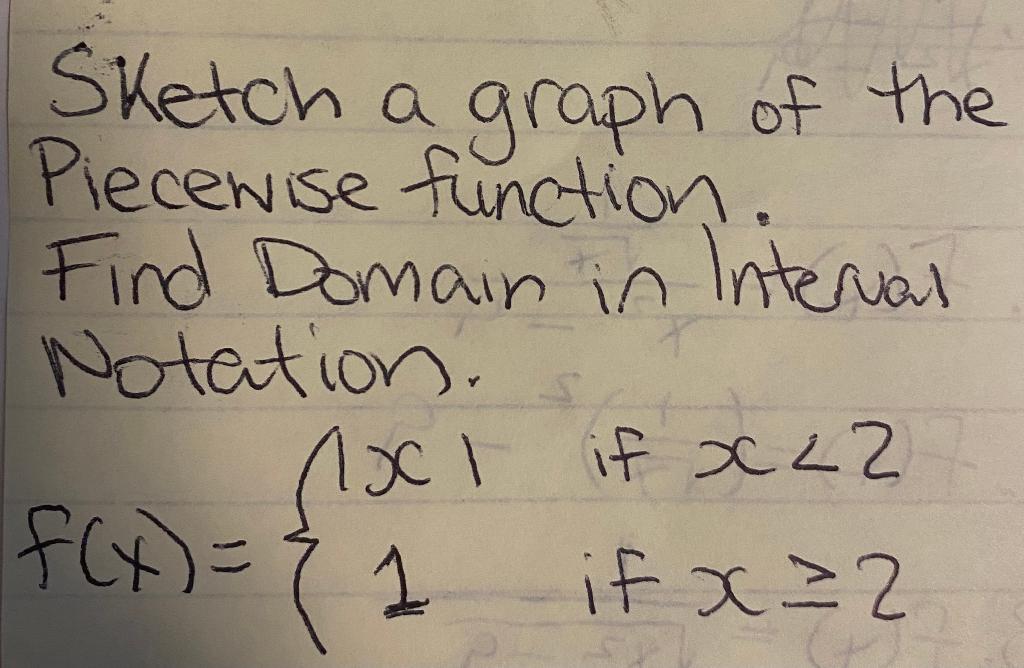 Sketch a graph of the
Piecewise function.
Find Domain in Interval
Notation.
f(x) = { |x| if x < 2
1 if x ≥ 2